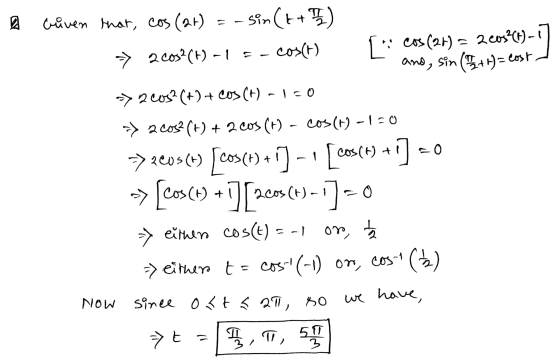 Given that, cos(2t) = -sin(t + π/2)
⇒ 2cos²(t) - 1 = - cos(t) [∵ cos(2t) = 2cos²(t)-1
and, sin(π/2+t) = cost]
⇒ 2cos²(t) + cos(t) - 1 = 0
⇒ 2cos²(t) + 2cos(t) - cos(t) - 1 = 0
⇒ 2cos(t) [cos(t)+1] - 1 [cos(t)+1] = 0
⇒ [cos(t)+1] [2cos(t)-1] = 0
⇒ either cos(t) = -1 or, 1/2
⇒ either t = cos⁻¹(-1) or, cos⁻¹(1/2)
Now since 0 ≤ t ≤ 2π, so we have,
⇒ t = π/3, π, 5π/3